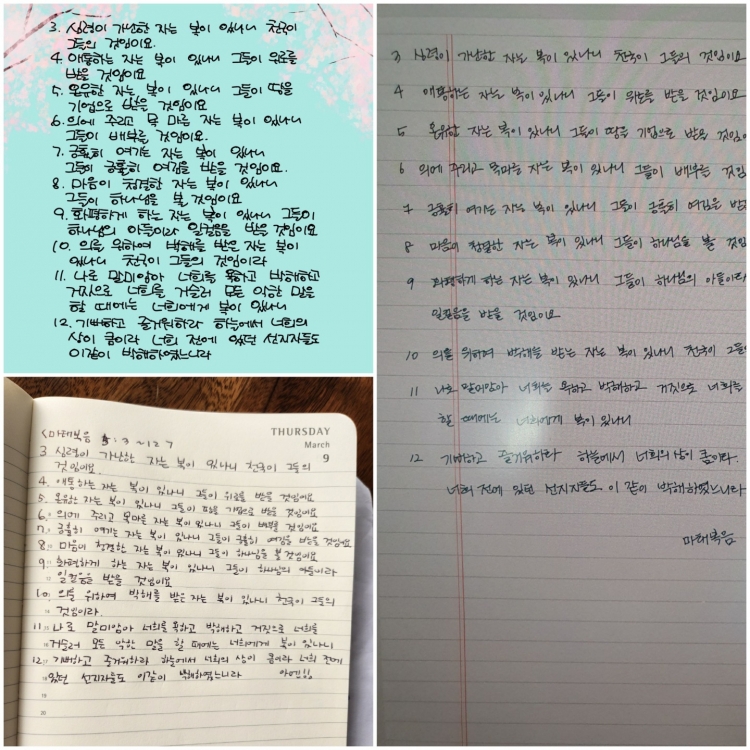 3. 심령이 가난한 자는 복이 있나니 천국이
그들의 것임이요.
4. 애통하는 자는 복이 있나니 그들이 위로를
받을 것임이요
5. 온유한 자는 복이 있나니 그들이 땅을
기업으로 받을 것임이요.
6. 의에 주리고 목 마를 자는 복이 있나니
그들이 배부를 것임이요.
7. 긍휼히 여기는 자는 복이 있나니
그들이 긍휼히 여김을 받을 것임이요.
8. 마음이 청결한 자는 복이 있나니
그들이 하나님을 볼 것임이요
9. 화평하게 하는 자는 복이 있나니 그들이
하나님의 아들이라 일컬음을 받을 것임이요
10. 의를 위하여 박해를 받은 자는 복이
있나니 천국이 그들의 것임이라
11. 나로 말미암아 너희를 욕하고 박해하고
거짓으로 너희를 거슬러 모든 악한 말을
할 때에는 너희에게 복이 있나니
12. 기뻐하고 즐거워하라 하늘에서 너희의
상이 큼이라 너희 전에 있던 선지자들도
이같이 박해하였느니라
THURSDAY
March
9
<마태복음 5:3~12>
3 심령이 가난한 자는 복이 있나니 천국이 그들의
것임이요.
4. 애통하는 자는 복이 있나니 그들이 위로를 받을 것임이요
5. 온유한 자는 복이 있나니 그들이 땅을 기업으로 받을 것임이요
6. 의에 주리고 목마를 자는 복이 있나니 그들이 배부를 것임이요
7. 긍휼히 여기는 자는 복이 있나니 그들이 긍휼히 여김을 받을 것임이요
8. 마음이 청결한 자는 복이 있나니 그들이 하나님을 볼 것임이요
9. 화평하게 하는 자는 복이 있나니 그들이 하나님의 아들이라
일컬음을 받을 것임이요
10. 의를 위하여 박해를 받은 자는 복이 있나니 천국이 그들의
것임이라.
11. 나로 말미암아 너희를 욕하고 박해하고 거짓으로 너희를
거슬러 모든 악한 말을 할 때에는 너희에게 복이 있나니
12. 기뻐하고 즐거워하라 하늘에서 너희의 상이 큼이라 너희 전에
있던 선지자들도 이같이 박해하였느니라
19
20
3 심령이 가난한 자는 복이 있나니 천국이 그들의 것임이요
4 애통하는 자는 복이 있나니 그들이 위로를 받을 것임이요
5 온유한 자는 복이 있나니 그들이 땅을 기업으로 받을 것임이
6 의에 주리고 목마를 자는 복이 있나니 그들이 배부를 것임
7 긍휼히 여기는 자는 복이 있나니 그들이 긍휼히 여김을 받
8 마음이 청결한 자는 복이 있나니 그들이 하나님을 볼 것임
9 화평하게 하는 자는 복이 있나니 그들이 하나님의 아들이라
일컬음을 받을 것임이요
10 의를 위하여 박해를 받는 자는 복이 있나니 천국이 그들
11 나로 말미암아 너희를 욕하고 박해하고 거짓으로 너희를
할 때에는 너희에게 복이 있나니
12 기뻐하고 즐거워하라 하늘에서 너희의 상이 큼이라.
너희 전에 있던 선지자들도 이 같이 박해하였느니라
마태복음